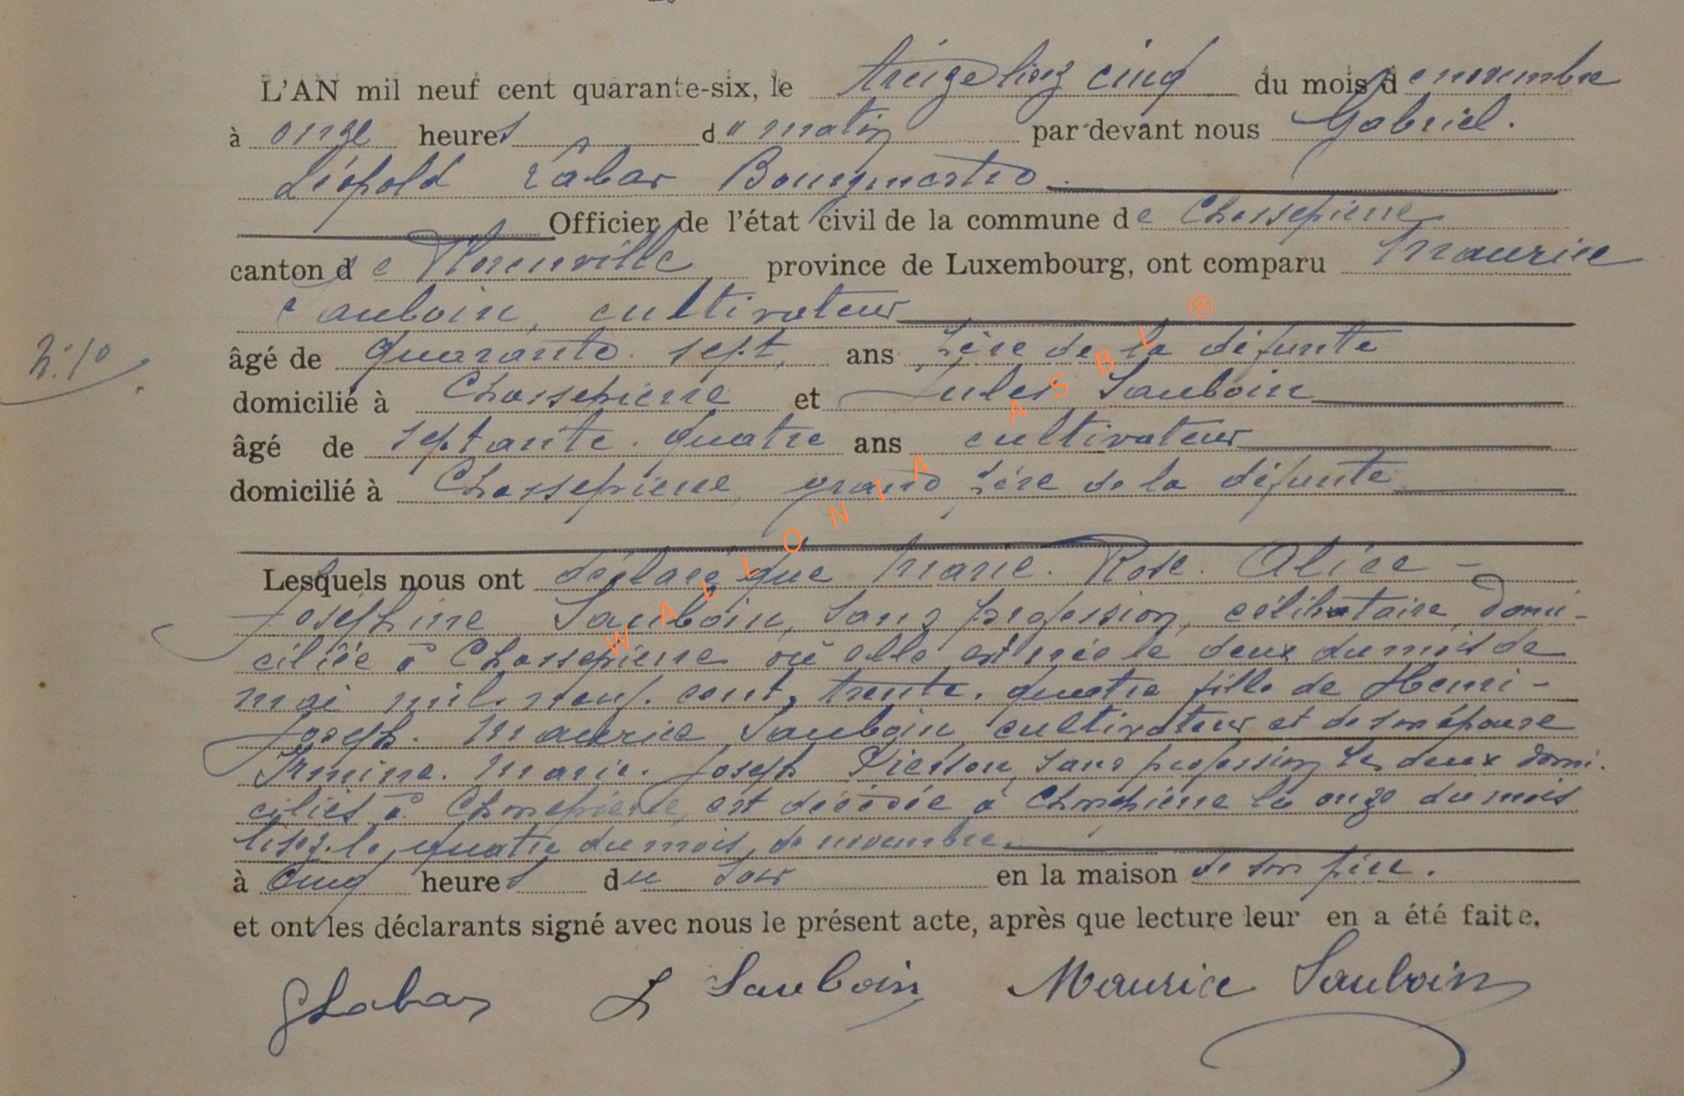 L'AN mil neuf cent quarante-six, le treize lisez cinq du mois de novembre
à onze heures du matin par devant nous Gabriel.
Léopold Labar Bourgmestre
Officier de l'état civil de la commune de Chassepierre
canton de Florenville province de Luxembourg, ont comparu Maurice
Sauboin, cultivateur
âgé de quarante. sept, ans père de la défunte
N: 10
domicilié à Chassepierre et Jules Sauboin
âgé de septante. quatre ans cultivateur
domicilié à Chassepierre, grand père de la défunte
Lesquels nous ont déclaré que Marie. Rose. Alice -
Joséphine Sauboin, sans profession, célibataire, domi-
ciliée à Chassepierre où elle est née le deux du mois de
mai mil neuf. cent, trente. quatre fille de Henri -
Joseph. Maurice Sauboin cultivateur et de son épouse
Irmine. Marie. Joseph Pierson, sans profession, les deux domi-
ciliés à Chassepierre, est décédée à Chassepierre le onze du mois
lisez. le quatre du mois de novembre.
à cinq heures du soir en la maison de son père.
et ont les déclarants signé avec nous le présent acte, après que lecture leur en a été faite.
GLabar J Sauboin Maurice Sauboin
WALLONIA ASBL ®